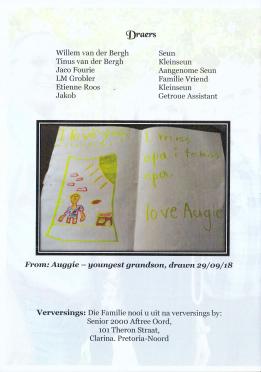 Draers
Willem van der Bergh Seun
Tinus van der Bergh Kleinseun
Jaco Fourie Aangenome Seun
LM Grobler Familie Vriend
Etienne Roos Kleinseun
Jakob Getroue Assistant
I miss
opa
opa.
love Augie
From: Auggie – youngest grandson, drawn 29/09/18
Verversings: Die Familie nooi u uit na verversings by:
Senior 2000 Aftree Oord,
101 Theron Straat,
Clarina. Pretoria-Noord